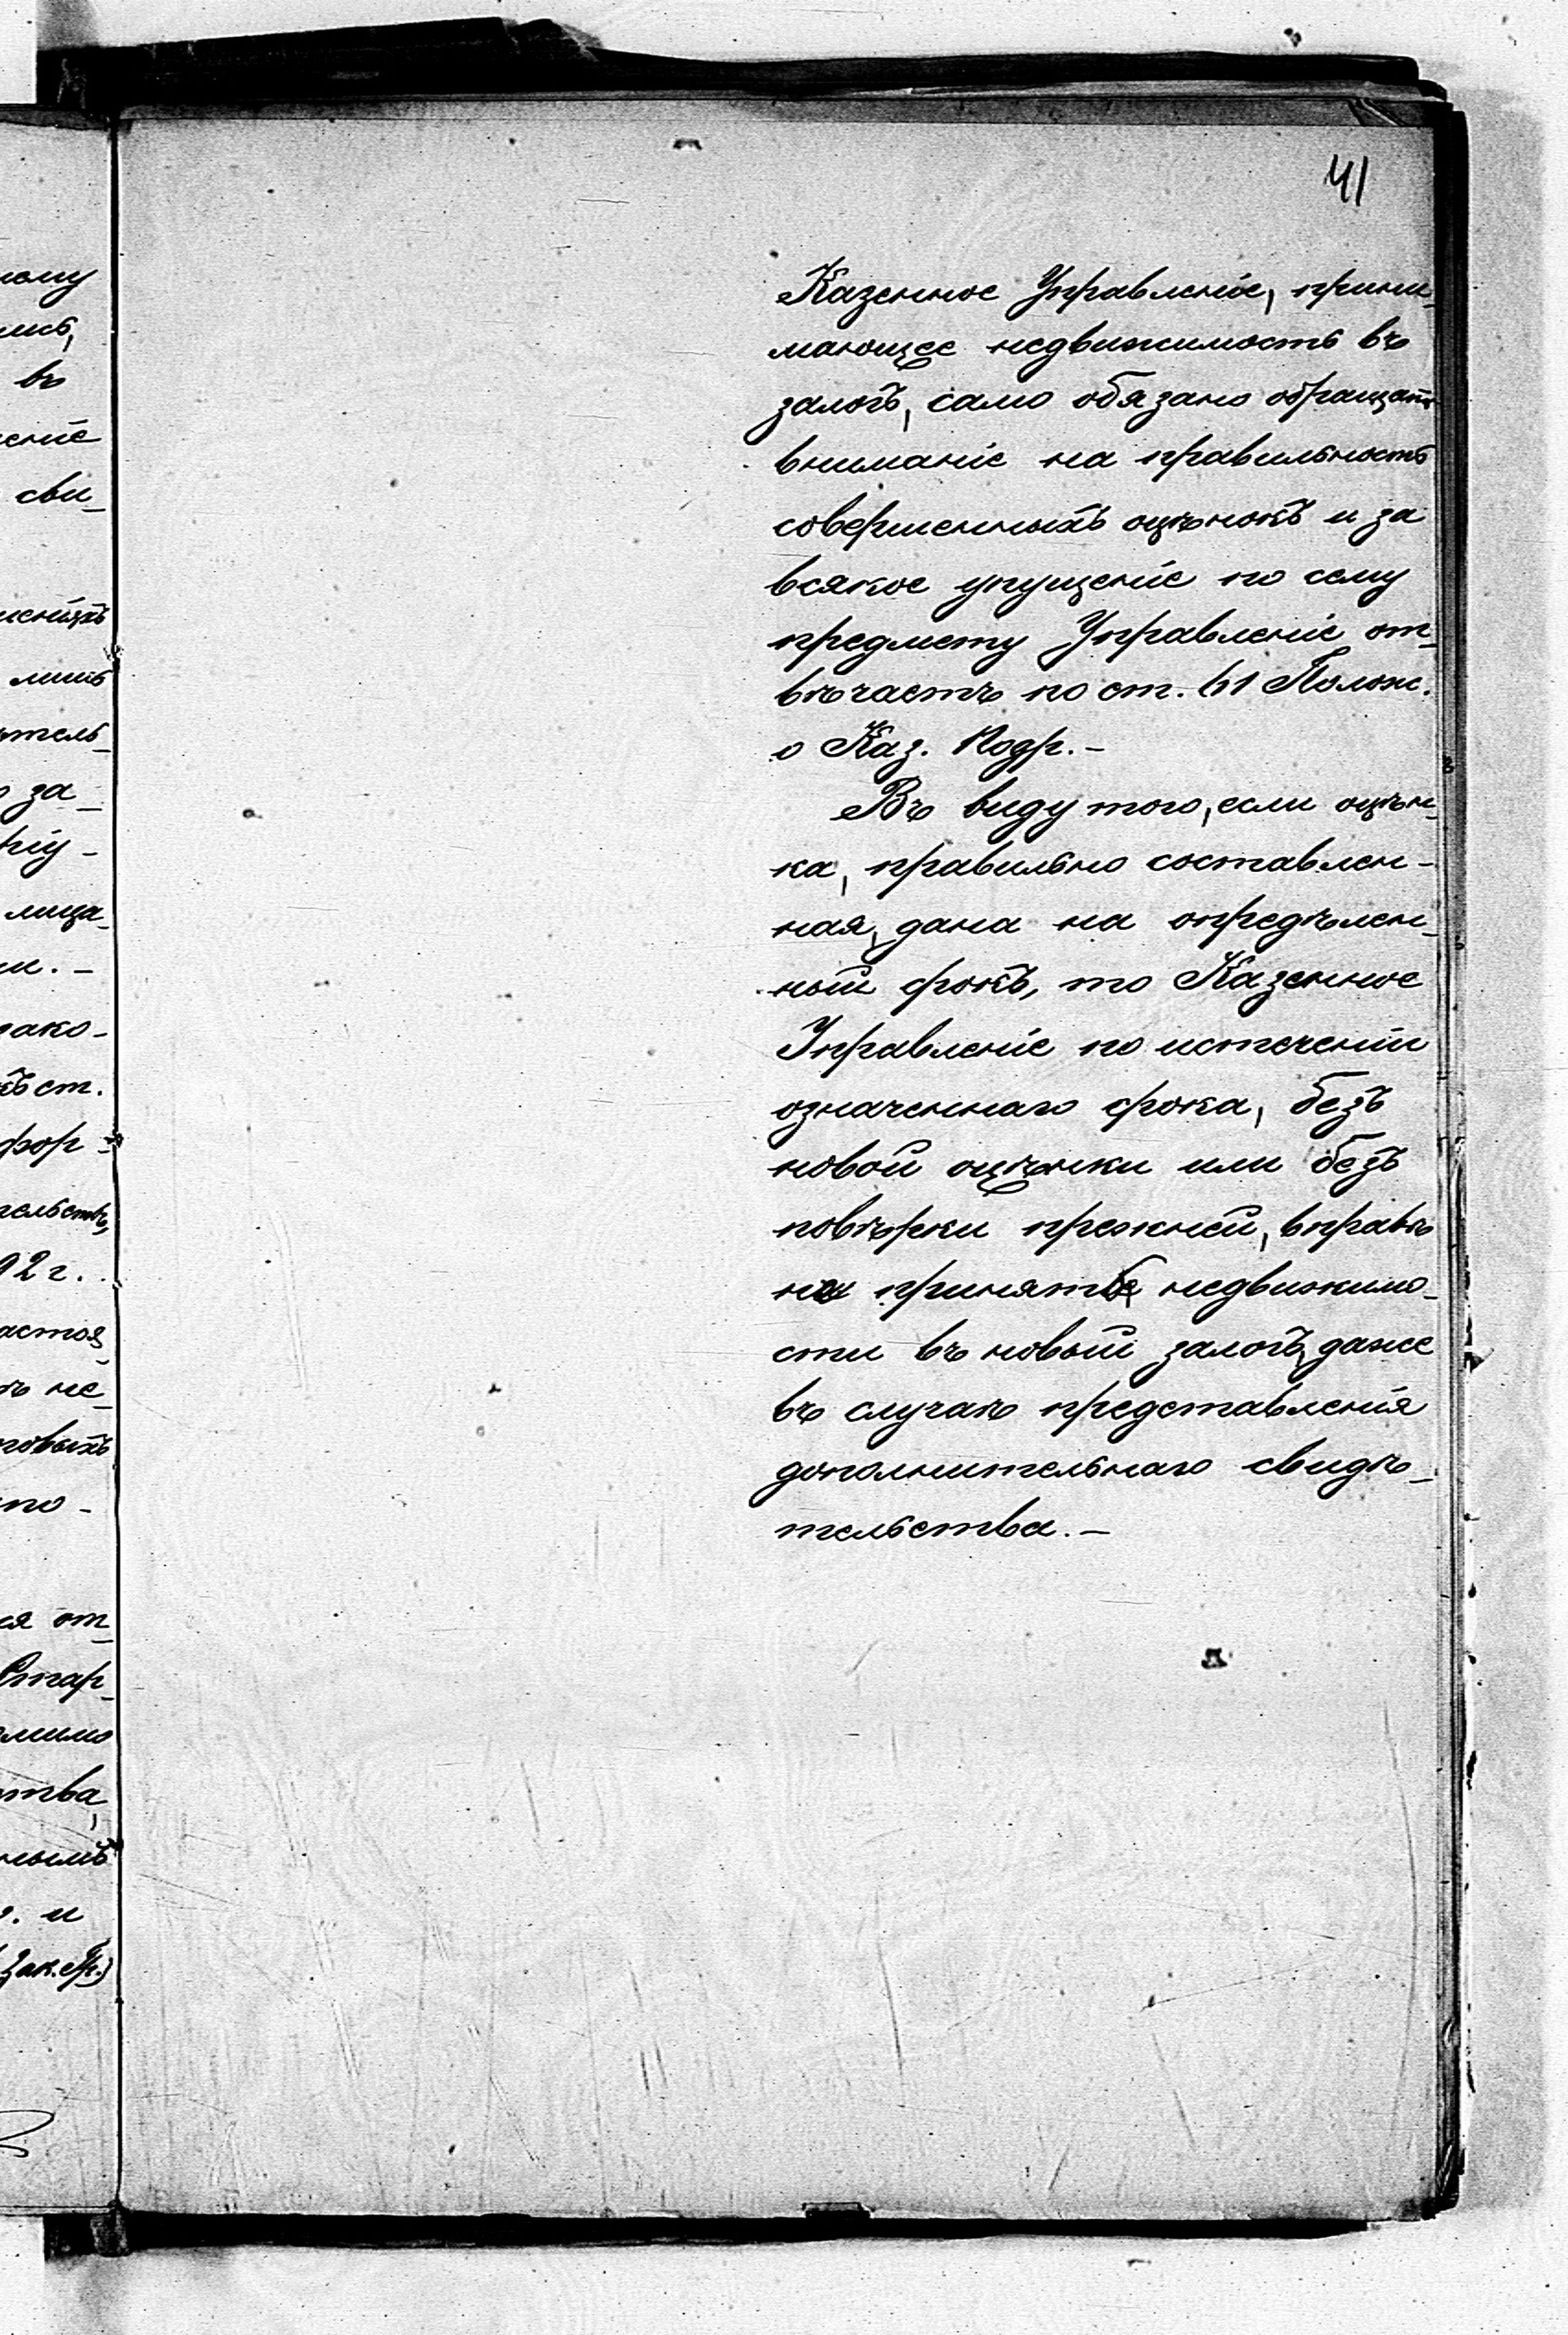 41
Казенное Управленіе, прини-
мающее недвижимость въ
залогъ, само обязано обращать
вниманіе на правильность
совершенныхъ оцѣнокъ и за
всякое упущеніе по сему
предмету Управленіе от-
вѣчаетъ по ст. 61 Полож.
о Каз. Подр. —
Въ виду того, если оцѣн-
ка, правильно составлен-
ная, дана на опредѣлен-
ный срокъ, то Казенное
Управленіе по истеченіи
означеннаго срока, безъ
новой оцѣнки или безъ
повѣрки прежней, вправѣ
не принять недвижимо-
сти въ новый залогъ, даже
въ случаѣ представленія
дополнительнаго свидѣ-
тельства. —
ному
въ
сви-
лишь
за-
лица
ст.
92 г.
не
по-
ся от-
ства,
и